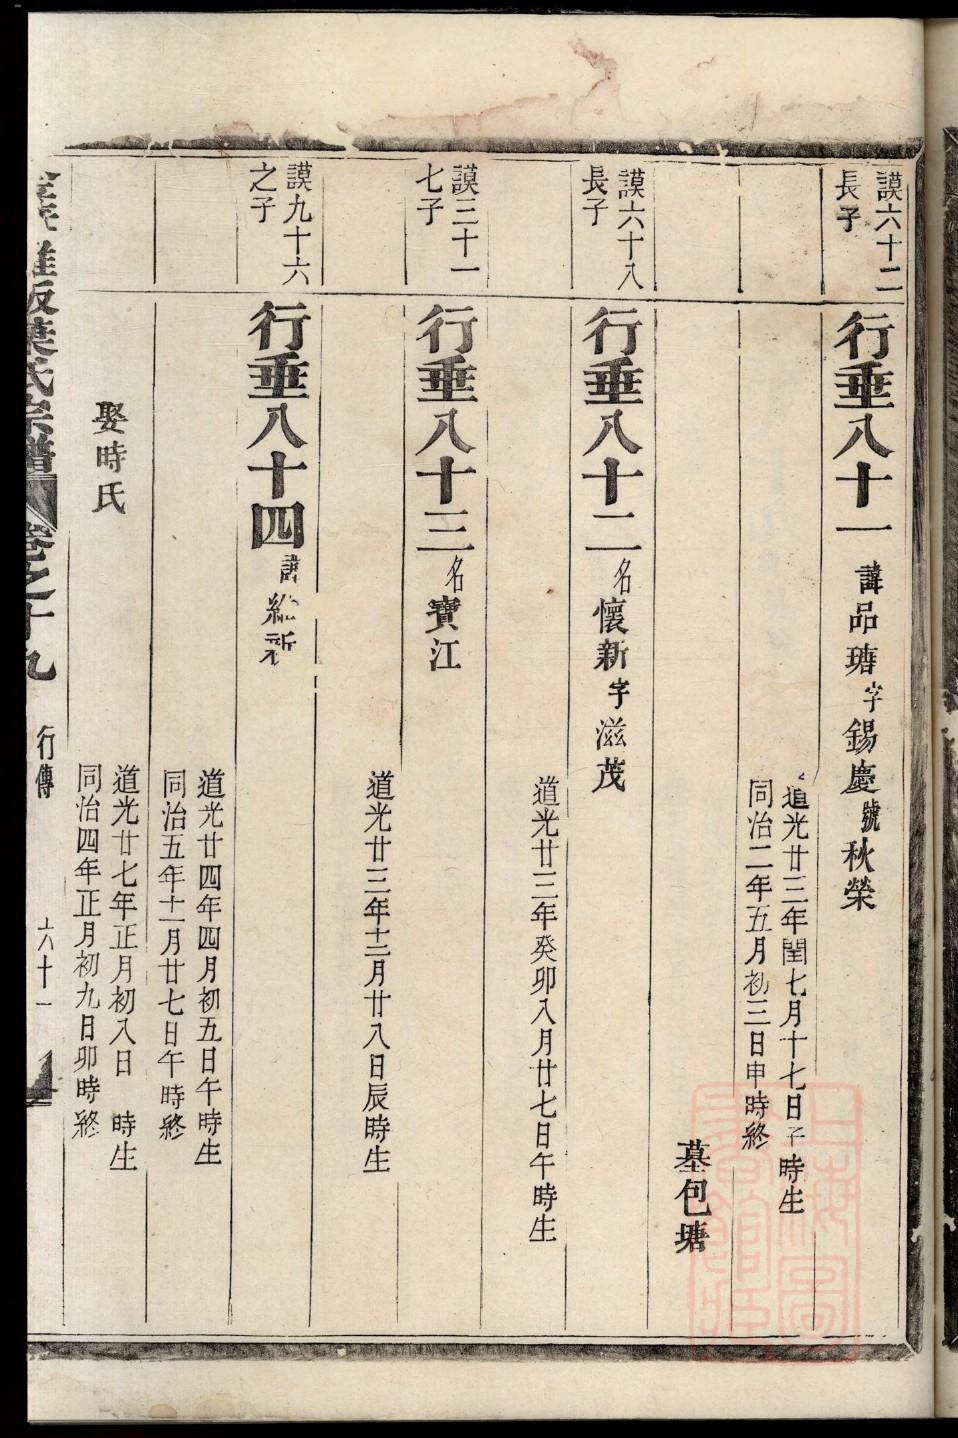 謨六十二
長子
行垂八十一 諱品瑭字錫慶號秋榮
道光廿三年閏七月十七日子時生
同治二年五月初三日申時終
墓包塘
謨六十八
長子
行垂八十二 名懷新字滋茂
道光廿三年癸卯八月廿七日午時生
謨三十一
七子
行垂八十三 名寶江
道光廿三年十二月廿八日辰時生
謨九十六
之子
行垂八十四 諱 新
道光廿四年四月初五日午時生
同治五年十一月廿七日午時終
娶時氏
道光廿七年正月初八日 時生
同治四年正月初九日卯時終
葉氏宗譜 卷之十九 行傳 六十一
上海圖書館藏